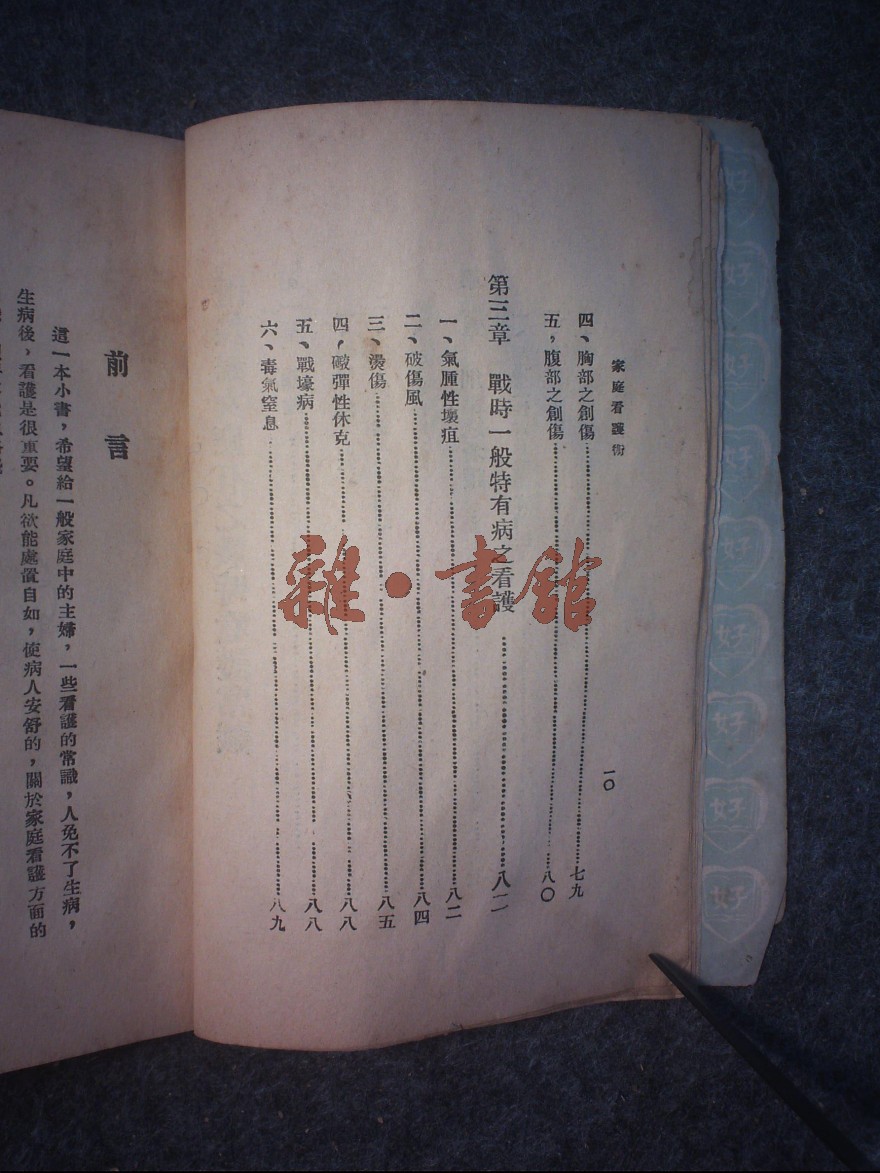 家庭看護術
一〇
四、胸部之創傷……七九
五，腹部之創傷……八〇
第三章 戰時一般特有病之看護……八二
一、氣腫性壞疽……八二
二、破傷風……八四
三、燙傷……八五
四，礮彈性休克……八八
五、戰壕病……八八
六、毒氣窒息……八九
雜·書館
前言
這一本小書，希望給一般家庭中的主婦，一些看護的常識，人免不了生病，
生病後，看護是很重要。凡欲能處置自如，使病人安舒的，關於家庭看護方面的
好
好
好
好
好
好
好
好